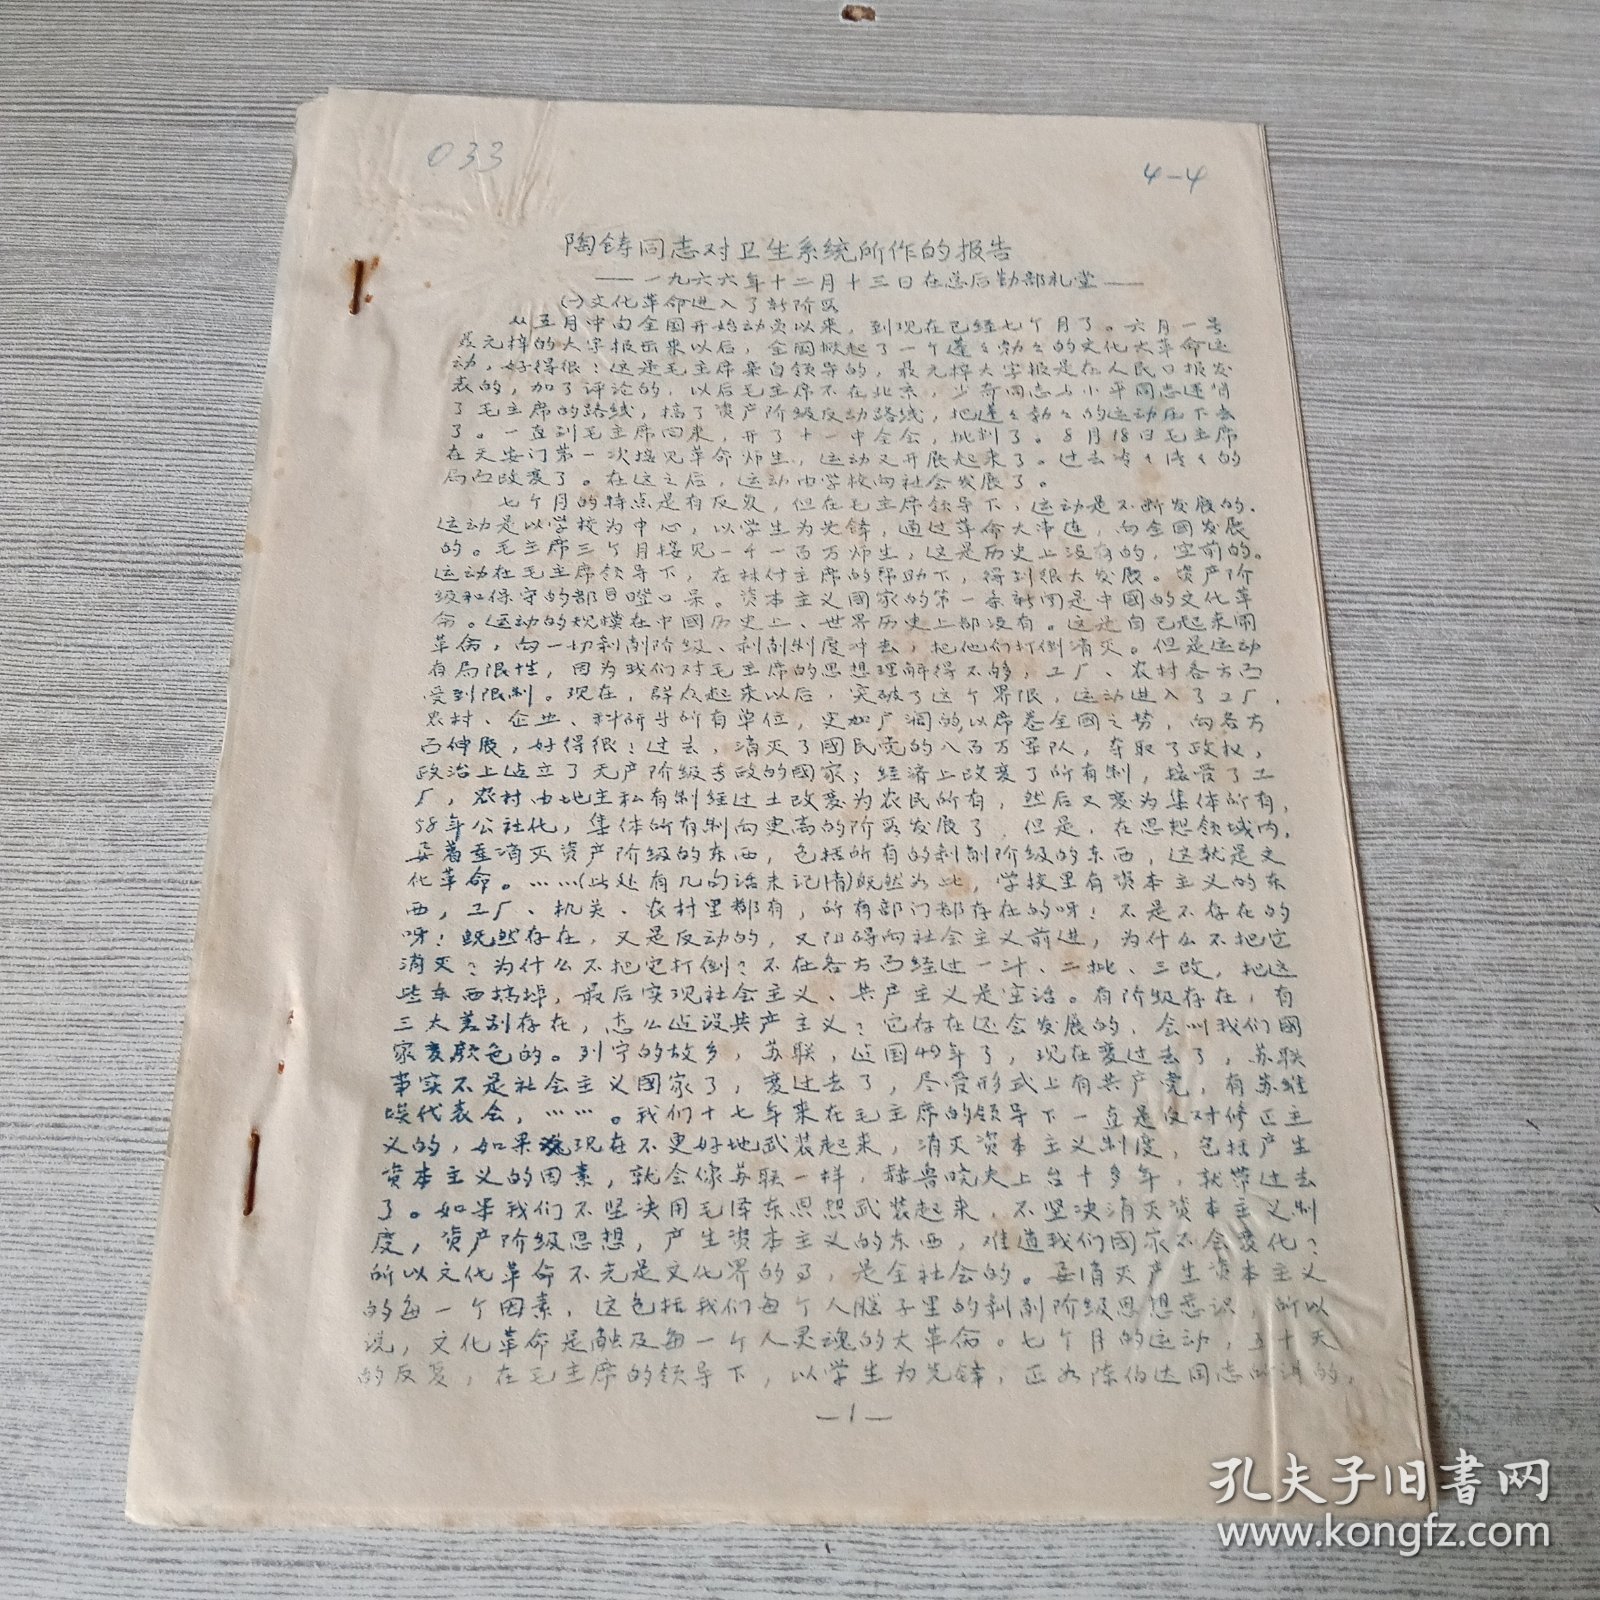 033
4-4
陶铸同志对卫生系统所作的报告
——一九六六年十二月十三日在总后勤部礼堂——
(一)文化革命进入了新阶段
从五月中向全国开始动员以来，到现在已经七个月了。六月一号
聂元梓的大字报出来以后，全国掀起了一个蓬々勃々的文化大革命运
动，好得很！这是毛主席亲自领导的，聂元梓大字报是在人民日报发
表的，加了评论的，以后毛主席不在北京，少奇同志与小平同志违背
了毛主席的路线，搞了资产阶级反动路线，把蓬々勃々的运动压下去
了。一直到毛主席回来，开了十一中全会，批判了。8月18日毛主席
在天安门第一次接见革命师生，运动又开展起来了。过去冷々清々的
局面改变了。在这之后，运动由学校向社会发展了。
七个月的特点是有反复，但在毛主席领导下，运动是不断发展的。
运动是以学校为中心，以学生为先锋，通过革命大串连，向全国发展
的。毛主席三个月接见一千一百万师生，这是历史上没有的，空前的。
运动在毛主席领导下，在林付主席的帮助下，得到很大发展。资产阶
级和保守的都目瞪口呆。资本主义國家的第一条新闻是中國的文化革
命。运动的规模在中國历史上、世界历史上都没有。这是自己起来闹
革命，向一切剥削阶级、剥削制度冲去，把他们打倒消灭。但是运动
有局限性，因为我们对毛主席的思想理解得不够，工厂、农村各方面
受到限制。现在，群众起来以后，突破了这个界限，运动进入了工厂、
农村、企业、科研等所有单位，更加广阔的，以席卷全國之势，向各方
面伸展，好得很！过去，消灭了國民党的八百万军队，夺取了政权，
政治上建立了无产阶级专政的國家；经济上改变了所有制，接管了工
厂，农村由地主私有制经过土改变为农民所有，然后又变为集体所有，
58年公社化，集体所有制向更高的阶段发展了，但是，在思想领域内，
要着重消灭资产阶级的东西，包括所有的剥削阶级的东西，这就是文
化革命。……(此处有几句话未记清)既然如此，学校里有资本主义的东
西，工厂、机关、农村里都有，所有部门都存在的呀！不是不存在的
呀！既然存在，又是反动的，又阻碍向社会主义前进，为什么不把它
消灭？为什么不把它打倒？不在各方面经过一斗、二批、三改，把这
些东西搞掉，最后实现社会主义、共产主义是空话。有阶级存在，有
三大差别存在，怎么建设共产主义？它存在还会发展的，会叫我们國
家变颜色的。列宁的故乡，苏联，建国49年了，现在变过去了，苏联
事实不是社会主义國家了，变过去了，尽管形式上有共产党，有苏维
埃代表会，……。我们十七年来在毛主席的领导下一直是反对修正主
义的，如果现在不更好地武装起来，消灭资本主义制度，包括产生
资本主义的因素，就会像苏联一样，赫鲁晓夫上台十多年，就带过去
了。如果我们不坚决用毛泽东思想武装起来，不坚决消灭资本主义制
度，资产阶级思想，产生资本主义的东西，难道我们國家不会变化？
所以文化革命不光是文化界的了，是全社会的。要消灭产生资本主义
的每一个因素，这包括我们每个人脑子里的剥削阶级思想意识，所以
说，文化革命是触及每一个人灵魂的大革命。七个月的运动，五十天
的反复，在毛主席的领导下，以学生为先锋，正如陈伯达同志所讲的，
—1—
孔夫子旧书网
www.kongfz.com